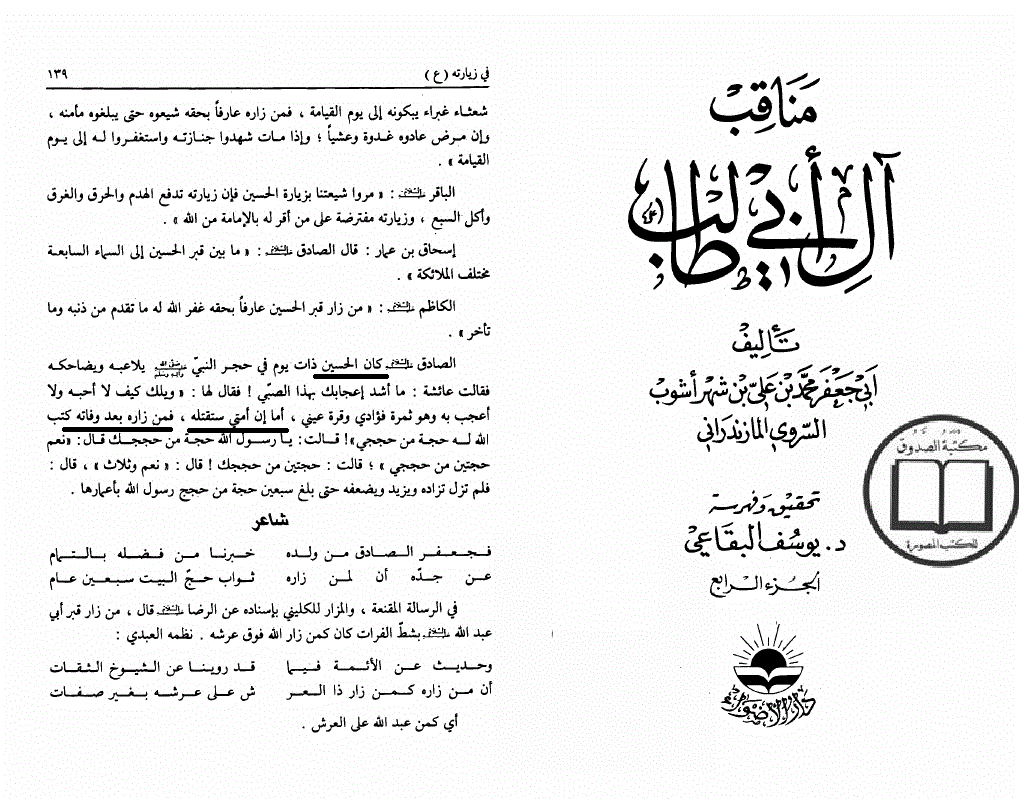 مَنَاقِب
آل أبي طالب (ع)
تأليف
أبي جعفر محمد بن علي بن شهر أشوب
السروي المازندراني
تحقيق وفهرسة
د. يوسف البقاعي
الجزء الرابع
دار الأضواء
مكتبة الصدوق
للكتب المصورة
في زيارته (ع) ١٣٩
شعثاء غبراء يبكونه إلى يوم القيامة ، فمن زاره عارفاً بحقه شيعوه حتى يبلغوه مأمنه ،
وإن مرض عادوه غدوة وعشياً ؛ وإذا مات شهدوا جنازته واستغفروا له إلى يوم
القيامة » .
الباقر عليه السلام : « مروا شيعتنا بزيارة الحسين فإن زيارته تدفع الهدم والحرق والغرق
وأكل السبع ، وزيارته مفترضة على من أقر له بالإمامة من الله » .
إسحاق بن عمار : قال الصادق عليه السلام : « ما بين قبر الحسين إلى السماء السابعة
مختلف الملائكة » .
الكاظم عليه السلام : « من زار قبر الحسين عارفاً بحقه غفر الله له ما تقدم من ذنبه وما
تأخر » .
الصادق عليه السلام كان الحسين ذات يوم في حجر النبيّ صلى الله عليه وآله وسلم يلاعبه ويضاحكه
فقالت عائشة : ما أشد إعجابك بهذا الصبّي ! فقال لها : « ويلك كيف لا أحبه ولا
أعجب به وهو ثمرة فؤادي وقرة عيني ، أما إن أمتي ستقتله ، فمن زاره بعد وفاته كتب
الله له حجة من حججي»! قالت: يا رسول الله حجة من حججك قال: «نعم
حجتين من حججي » ؛ قالت : حجتين من حججك ! قال : « نعم وثلاث » ، قال :
فلم تزل تزاده ويزيد ويضعفه حتى بلغ سبعين حجة من حجج رسول الله بأعمارها .
شاعر
فجعفر الصادق من ولده خبرنا من فضله بالتمام
عن جدّه أن لمن زاره ثواب حجّ البيت سبعين عام
في الرسالة المقنعة ، والمزار للكليني بإسناده عن الرضا عليه السلام قال ، من زار قبر أبي
عبد الله عليه السلام بشطّ الفرات كان كمن زار الله فوق عرشه . نظمه العبدي :
وحديث عن الأئمة فيما قد روينا عن الشيوخ الثقات
أن من زاره كمن زار ذا العر ش على عرشه بغير صفات
أي كمن عبد الله على العرش .